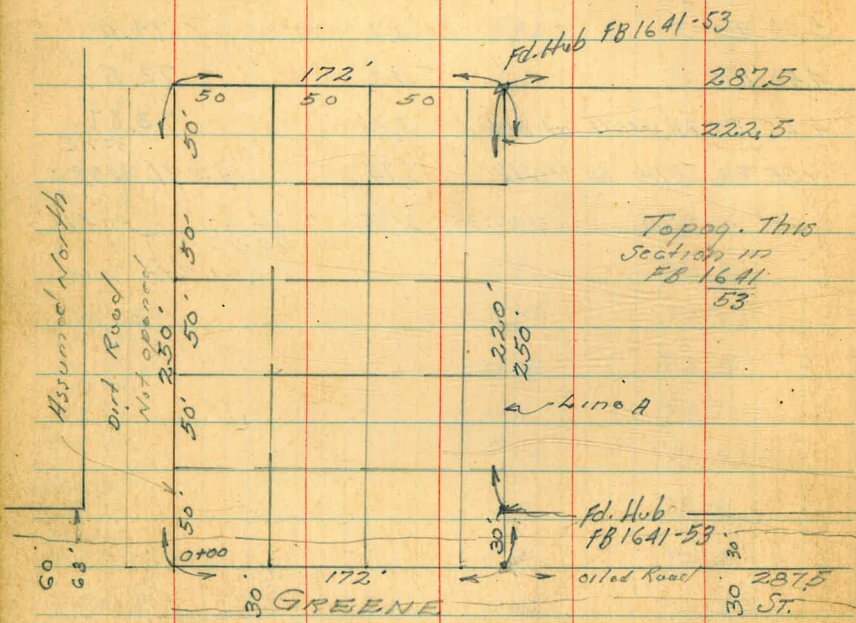 Fd. Hub FB 1641-53
172'
287.5
50 50 50
50'
222.5
Assumed North
Dirt Road
Not opened
250'
50'
50'
50'
50'
Topog. This
Section in
FB 1641
53
220'
250'
Line A
Fd. Hub
FB 1641-53
30'
30'
0+00
60'
63'
172'
oiled Road
287.5
30'
GREENE
30
ST.